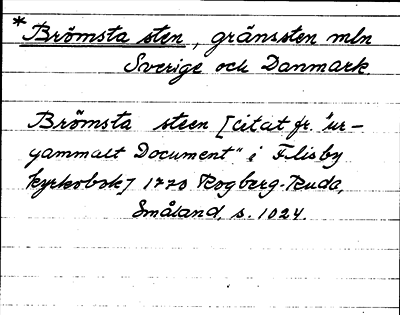 *Brömsta sten, gränssten mln
Sverige och Danmark.
Brömsta steen [citat fr. "ur-
gammalt Document" i Flisby
kyrkobok] 1770 Rogberg-Ruda,
Småland, s. 1024.